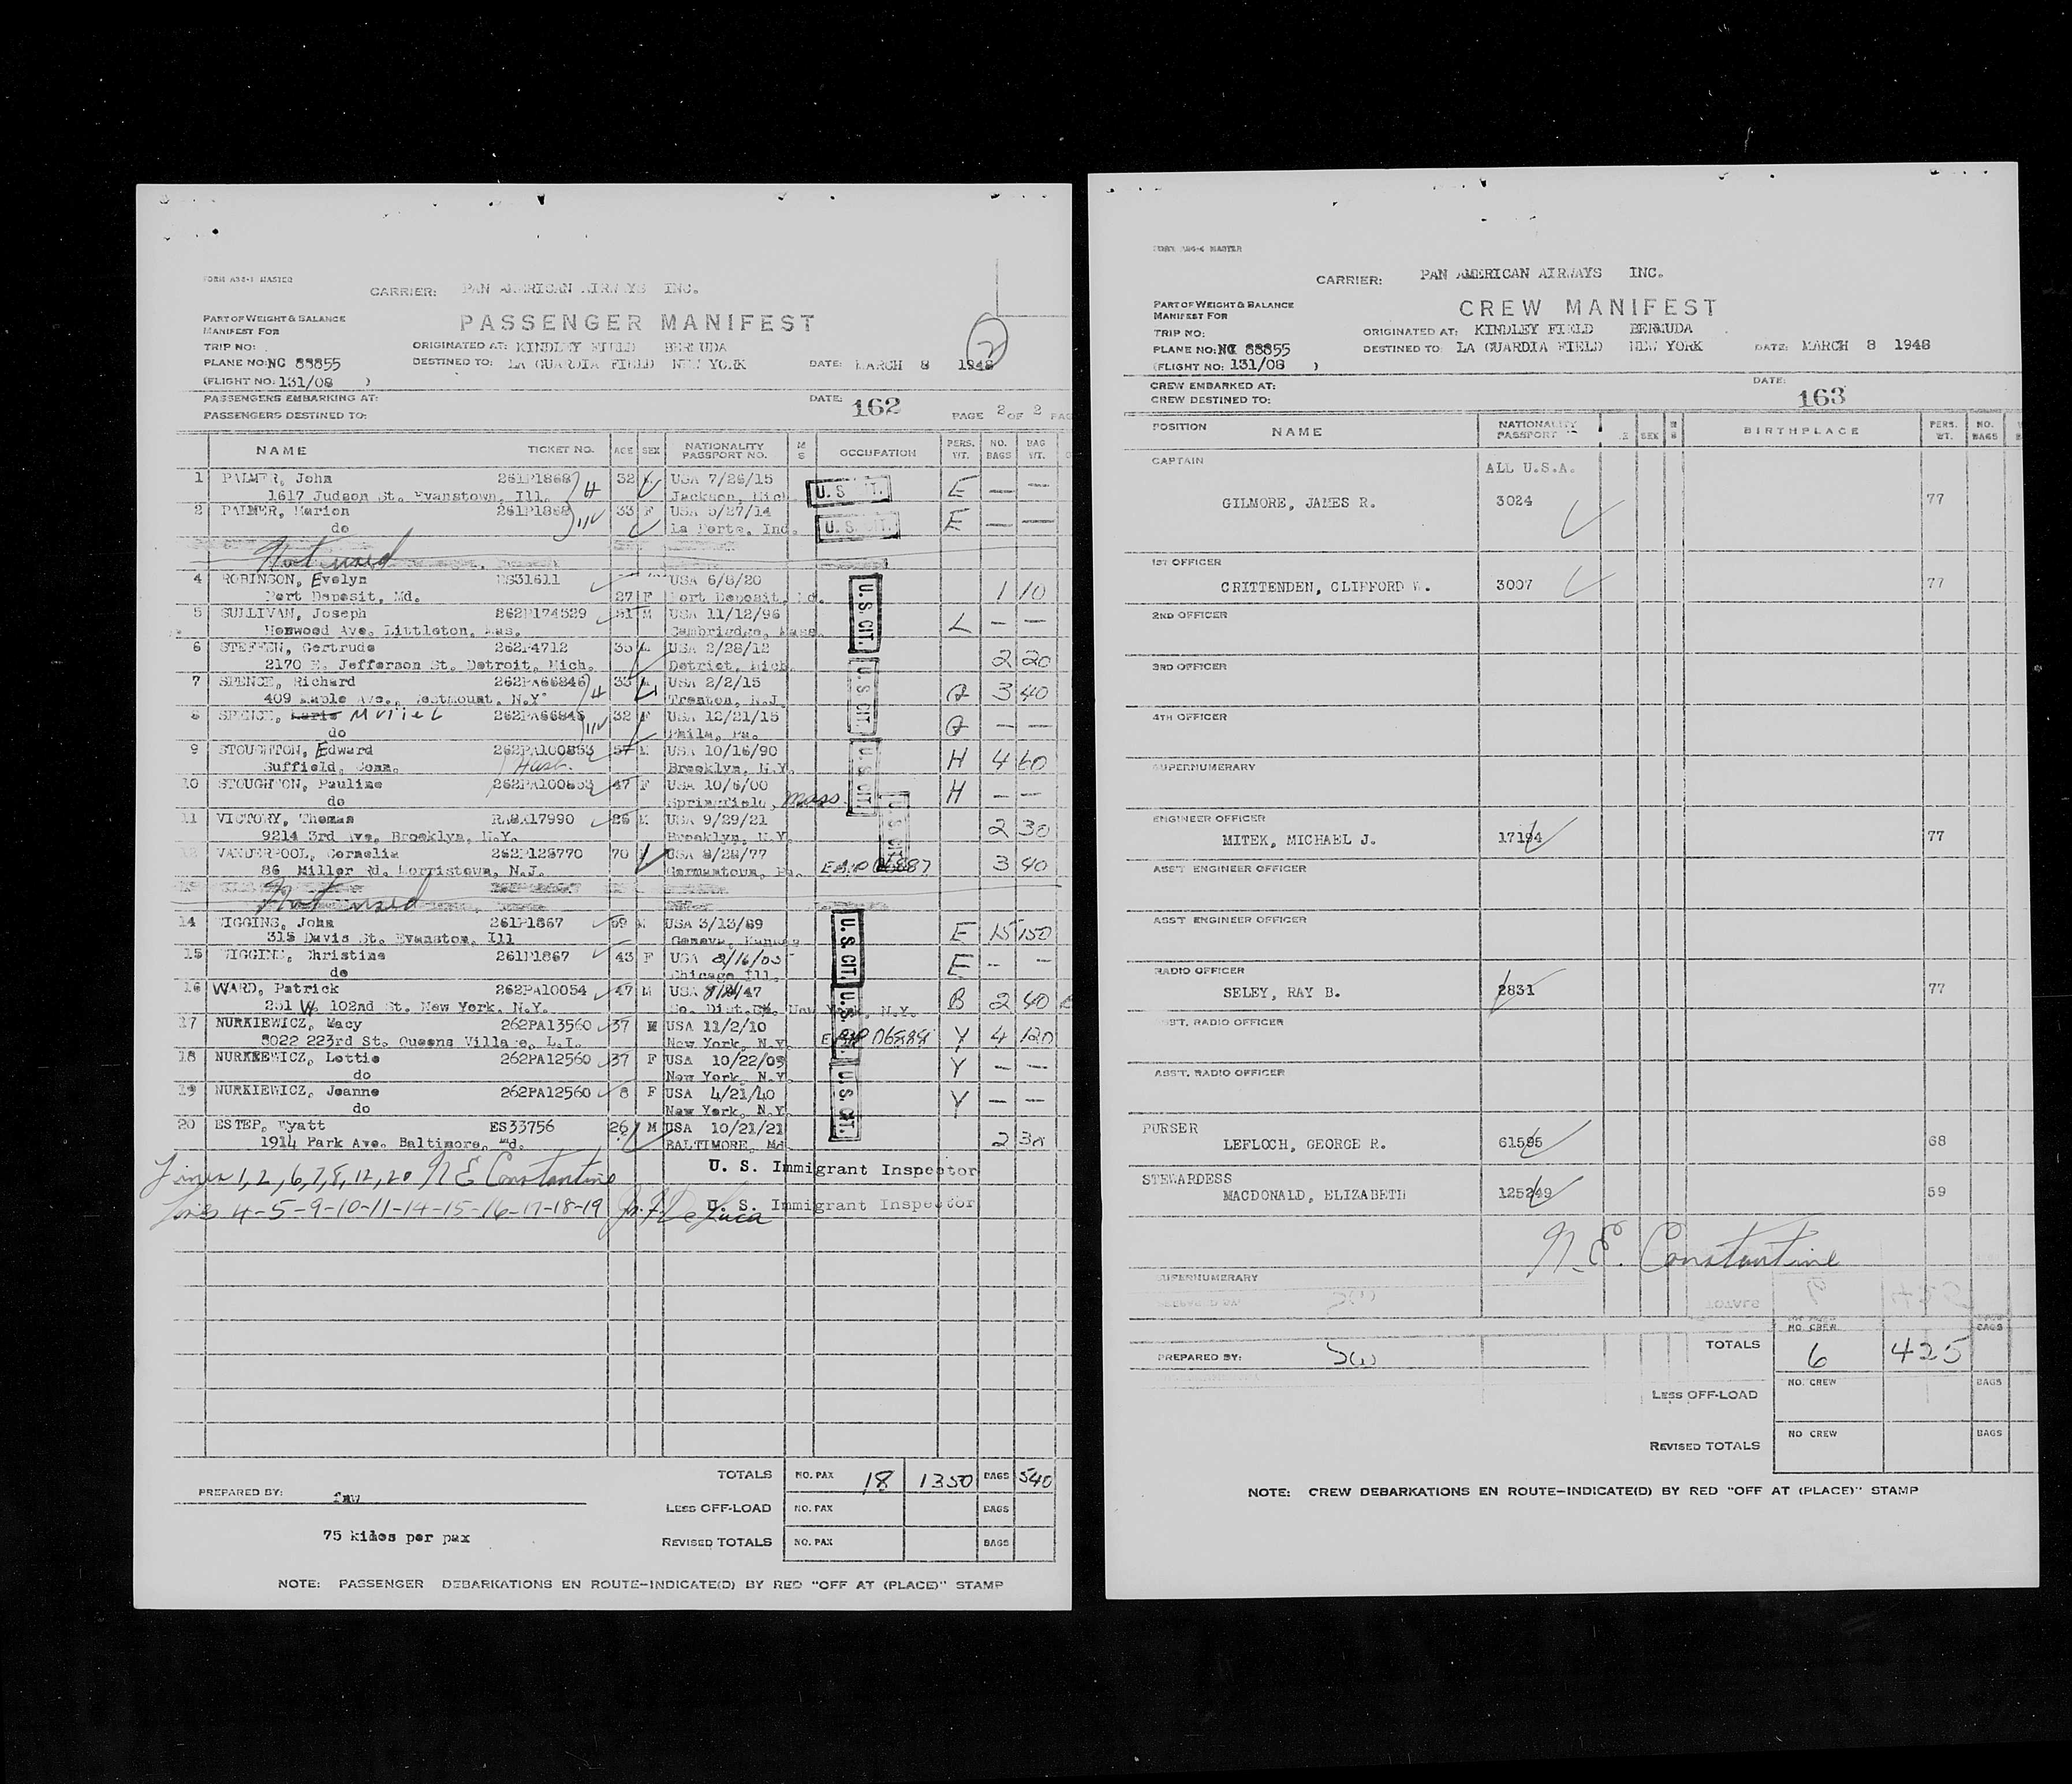 FORM A36-1 MASTER
CARRIER: PAN AMERICAN AIRWAYS INC.
PART OF WEIGHT & BALANCE
MANIFEST FOR
PASSENGER MANIFEST
2
TRIP NO:
ORIGINATED AT: KINDLEY FIELD BERMUDA
PLANE NO: NC 88855
DESTINED TO: LA GUARDIA FIELD NEW YORK
DATE: MARCH 8 1948
(FLIGHT NO: 131/08 )
PASSENGERS EMBARKING AT:
DATE: 162
PASSENGERS DESTINED TO:
PAGE 2 OF 2
NAME TICKET NO. AGE SEX NATIONALITY PASSPORT NO. M S OCCUPATION PERS. WT. NO. BAGS BAG WT.
1 PALMER, John 261P1868 32 USA 7/26/15
1617 Judson St. Evanstown, Ill. Jackson, Mich. U.S. CIT. E — —
2 PALMER, Marion 261P1868 33 F USA 5/27/14
do La Porte, Ind. U.S. CIT. E — —
Not used
4 ROBINSON, Evelyn ES31611 USA 6/8/20
Port Deposit, Md. 27 F Port Deposit, Md. 1 10
5 SULLIVAN, Joseph 262P174529 51 M USA 11/12/96 U.S. CIT.
Henwood Ave. Littleton, Mas. Cambriedge, Mass. L — —
6 STEFFEN, Gertrude 262P4712 35 USA 2/28/12
2170 E. Jefferson St. Detroit, Mich. Detrict, Mich 2 20
7 SPENCE, Richard 262PA66846 33 M USA 2/2/15 U.S. CIT.
409 Maple Ave., Westmount, N.Y Trenton, N.J. Q 3 40
8 SPENCE, Muriel 262PA66846 32 F USA 12/21/15
do Phila, Pa. Q — —
9 STOUGHTON, Edward 262PA100853 57 M USA 10/16/90
Suffield, Conn. Brooklyn, N.Y. U.S. CIT. H 4 60
10 STOUGHTON, Pauline 262PA100853 47 F USA 10/6/00
do Springfield, Mass. H — —
11 VICTORY, Thomas 26 M USA 9/29/21
9214 3rd Ave. Brooklyn, N.Y. Brooklyn, N.Y. U.S. CIT. 2 30
12 VANDERPOOL, Cornelia 262P128770 70 USA 8/28/77
86 Miller Rd. Morristown, N.J. Germantown, Pa. 3 40
Not used
14 WIGGINS, John 261P1867 59 M USA 3/13/89
315 Davis St. Evanston, Ill Geneva, U.S. CIT. E 15 150
15 WIGGINS, Christine 261P1867 43 F USA
do Chicago Ill. E — —
16 WARD, Patrick 262PA10054 47 M USA
251 W. 102nd St. New York, N.Y. So. Dist. New York, N.Y. U.S. CIT. B 2 40
17 NURKIEWICZ, Macy 262PA13560 37 M USA 11/2/10
8022 223rd St. Queens Village, L.I. New York, N.Y. Y 4 120
18 NURKIEWICZ, Lottie 262PA12560 37 F USA 10/22/09
do New York, N.Y. Y — —
19 NURKIEWICZ, Jeanne 262PA12560 8 F USA 4/21/40
do New York, N.Y. U.S. CIT. Y — —
20 ESTEP, Wyatt ES33756 26 M USA 10/21/21
1914 Park Ave. Baltimore, Md. BALTIMORE, Md 2 30
Lines 1, 2, 6, 7, 8, 12, 20 N E Constantine U. S. Immigrant Inspector
Lines 4-5-9-10-11-14-15-16-17-18-19 DeLuca U. S. Immigrant Inspector
TOTALS NO. PAX 18 1350 BAGS 540
PREPARED BY:
LESS OFF-LOAD NO. PAX BAGS
75 kilos per pax
REVISED TOTALS NO. PAX BAGS
NOTE: PASSENGER DEBARKATIONS EN ROUTE-INDICATE(D) BY RED "OFF AT (PLACE)" STAMP
MASTER
CARRIER: PAN AMERICAN AIRWAYS INC.
PART OF WEIGHT & BALANCE
MANIFEST FOR
CREW MANIFEST
TRIP NO:
ORIGINATED AT: KINDLEY FIELD BERMUDA
PLANE NO: NC 88855
DESTINED TO: LA GUARDIA FIELD NEW YORK
DATE: MARCH 8 1948
(FLIGHT NO: 131/08 )
CREW EMBARKED AT:
DATE:
CREW DESTINED TO:
163
POSITION NAME NATIONALITY PASSPORT SEX BIRTHPLACE PERS. WT. NO. BAGS
CAPTAIN ALL U.S.A.
GILMORE, JAMES R. 3024 77
1ST OFFICER
CRITTENDEN, CLIFFORD W. 3007 77
2ND OFFICER
3RD OFFICER
4TH OFFICER
SUPERNUMERARY
ENGINEER OFFICER
MITEK, MICHAEL J. 17194 77
ASS'T ENGINEER OFFICER
ASS'T ENGINEER OFFICER
RADIO OFFICER
SELEY, RAY B. 2831 77
ASST. RADIO OFFICER
ASS'T. RADIO OFFICER
PURSER
LEFLOCH, GEORGE R. 61595 68
STEWARDESS
MACDONALD, ELIZABETH 125249 59
N. E. Constantine
SUPERNUMERARY
NO CREW BAGS
PREPARED BY: TOTALS 6 425
LESS OFF-LOAD NO. CREW BAGS
REVISED TOTALS NO CREW BAGS
NOTE: CREW DEBARKATIONS EN ROUTE-INDICATE(D) BY RED "OFF AT (PLACE)" STAMP